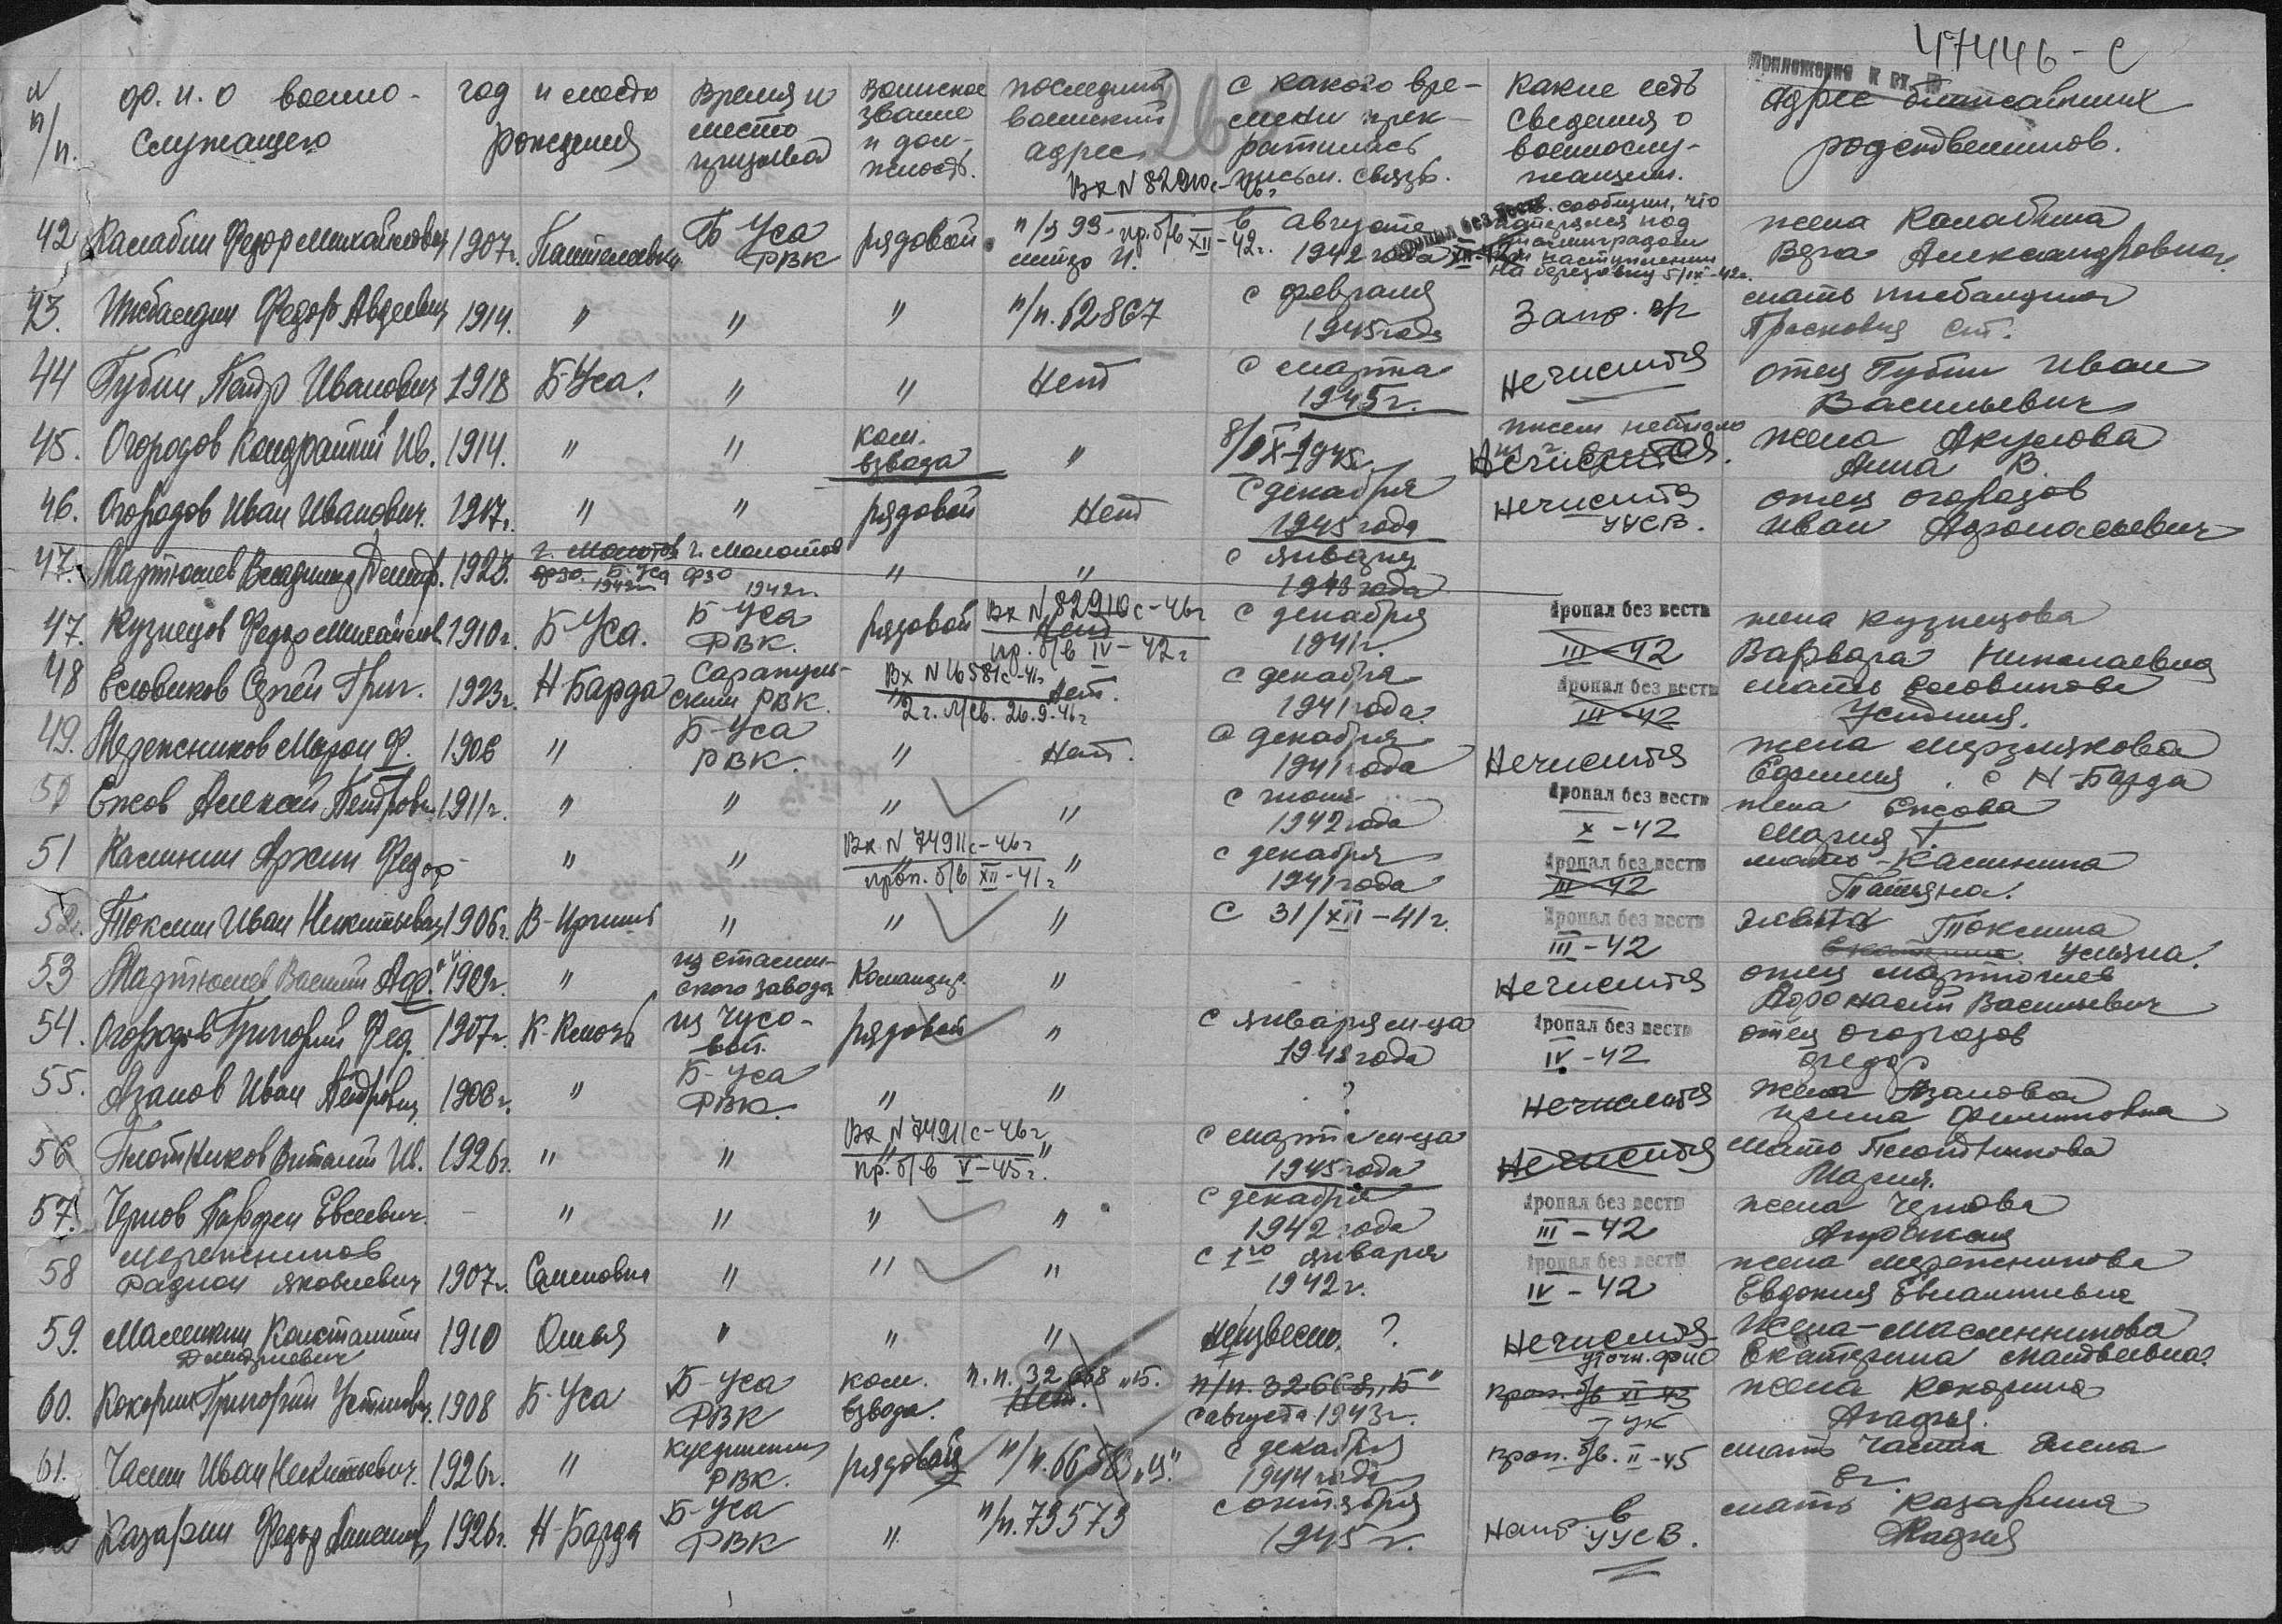 47446-с
Приложение к вх. №
N п/п.
ф. и. о военно-
служащего
год и место
рождения
Время и
место
призыва
Воинское
звание
и дол-
жность.
последний
воинский
адрес
с какого вре-
мени прек-
ратилась
письм. связь.
Какие есть
сведения о
военнослу-
жащем.
Адрес ближайших
родственников.
Вх N 82910с-46г
42 Калабин Федор Михайлович 1907г. Пантелеевка Б Уса РВК рядовой п/я 99 пр. б/в XII-42г. в августе 1942 года
пропал без вести
сообщили, что
потерялся под
жена Калабина
Вера Александровна
43. Федор Авдеевич 1914. " " " п/п. 62867 с февраля 1945 года Запр. п/п мать
Прасковья Ст.
44 Губин Петр Иванович 1918 Б-Уса. " " Нет с марта 1945г. Нечислится отец Губин Иван
Васильевич
45. Огородов Кондратий Ив. 1914. " " ком. взвода " 8/IX-194 писем не было Нечислится жена Акулова
Анна В.
46. Огородов Иван Иванович. 1917г. " " рядовой Нет С декабря 1945 года Нечислится УУСВ. отец Огородов
Иван Афонасьевич
47. Мартюшев Владимир Дмитр. 1923. г. Молотов фзо Б-Уса 1942г г. Молотов фзо 1942г. " " с января 1943 года
47. Кузнецов Федор Михайлов. 1910г. Б-Уса. Б-Уса РВК. рядовой Вх N 82910с-46г Нет пр. б/в IV-42г с декабря 1941г. Пропал без вести III-42 жена Кузнецова
Варвара Николаевна
48 Соловиков Сергей Григ. 1923г. Н-Барда Сарапуль-
ским РВК. Вх N 6581с-41г Нет. 2г. л/св. 26.9.46г с декабря 1941 года. Пропал без вести III-42 мать Соловикова
Устиния.
49. Мережников Мирон Ф. 1908 " Б-Уса РВК. " Нет. с декабря 1941 года Нечислится жена Мерзлякова
Ефимия с Н-Барда
50 Ежов Алексей Петрович 1911г. " " " " с июня 1942 года Пропал без вести X-42 жена Ежова
Мария Т.
51 Калинин Архип Федор - " " Вх N 74911с-46г проп. б/в XII-41г " с декабря 1941 года Пропал без вести III-42 мать-Калинина
Татьяна.
52. Токмин Иван Никитьевич 1906г. В-Иргинь " " " С 31/XII-41г. Пропал без вести III-42 жена Токмина
Ульяна.
53 Мартюшев Василий Аф. 1909г. " из
ского завода Командир. " Нечислится отец Мартюшев
Афонасий Васильевич
54. Огородов Григорий Фед. 1907г. К-Ключи из Чусо-
вой. рядовой " с января м-ца 1942 года Пропал без вести IV-42 отец Огородов
Федор
55. Азанов Иван Петрович 1908г. " Б-Уса РВК. " " ? Нечислится жена Азанова
Филипповна
56 Плотников Виталий Ив. 1926г. " " Вх N 74911с-46г пр. б/в V-45г. " с марта м-ца 1945 года Нечислится мать Плотникова
Мария.
57. Чернов Парфен Евсеевич. - " " " " с декабря 1942 года Пропал без вести III-42 жена Чернова
58 Мережников
Радион Яковлевич 1907г. Семеновка " " " с 1го января 1942г. Пропал без вести IV-42 жена Мережникова
Евдокия
59. Константин
Дмитриевич 1910 Ошья " " " Неизвестно. ? Нечислится уточн. ФИО Жена-Масленникова
Екатерина Матвеевна.
60. Кокорин Григорий Устинович. 1908 Б-Уса Б-Уса РВК ком. взвода. п.п. 32668 „Б. Нет. п/п. 32668 „Б" с августа 1943г. проп. б/в XI 43 жена Кокорина
Агафья.
61. Часин Иван Никитьевич. 1926г. " Куединским РВК. рядовой п/п. 66583 „У." с декабря 1944 года проп. б/в. II-45 мать Часина Елена
62 Казарин Федор 1926г. Н-Барда Б-Уса РВК " п/п. 79573 с октября 1945г. Напр. в УУСВ. мать Казарина